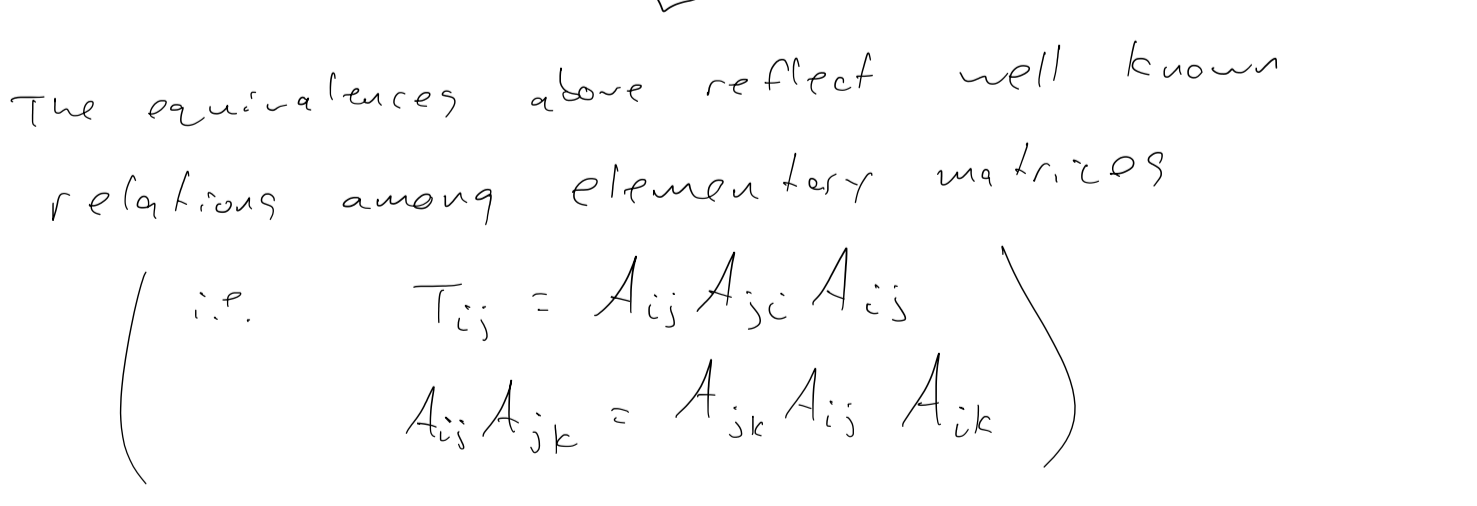 The equivalences above reflect well known
relations among elementary matrices
( i.e. T_{ij} = A_{ij} A_{ji} A_{ij}
A_{ij} A_{jk} = A_{jk} A_{ij} A_{ik} )